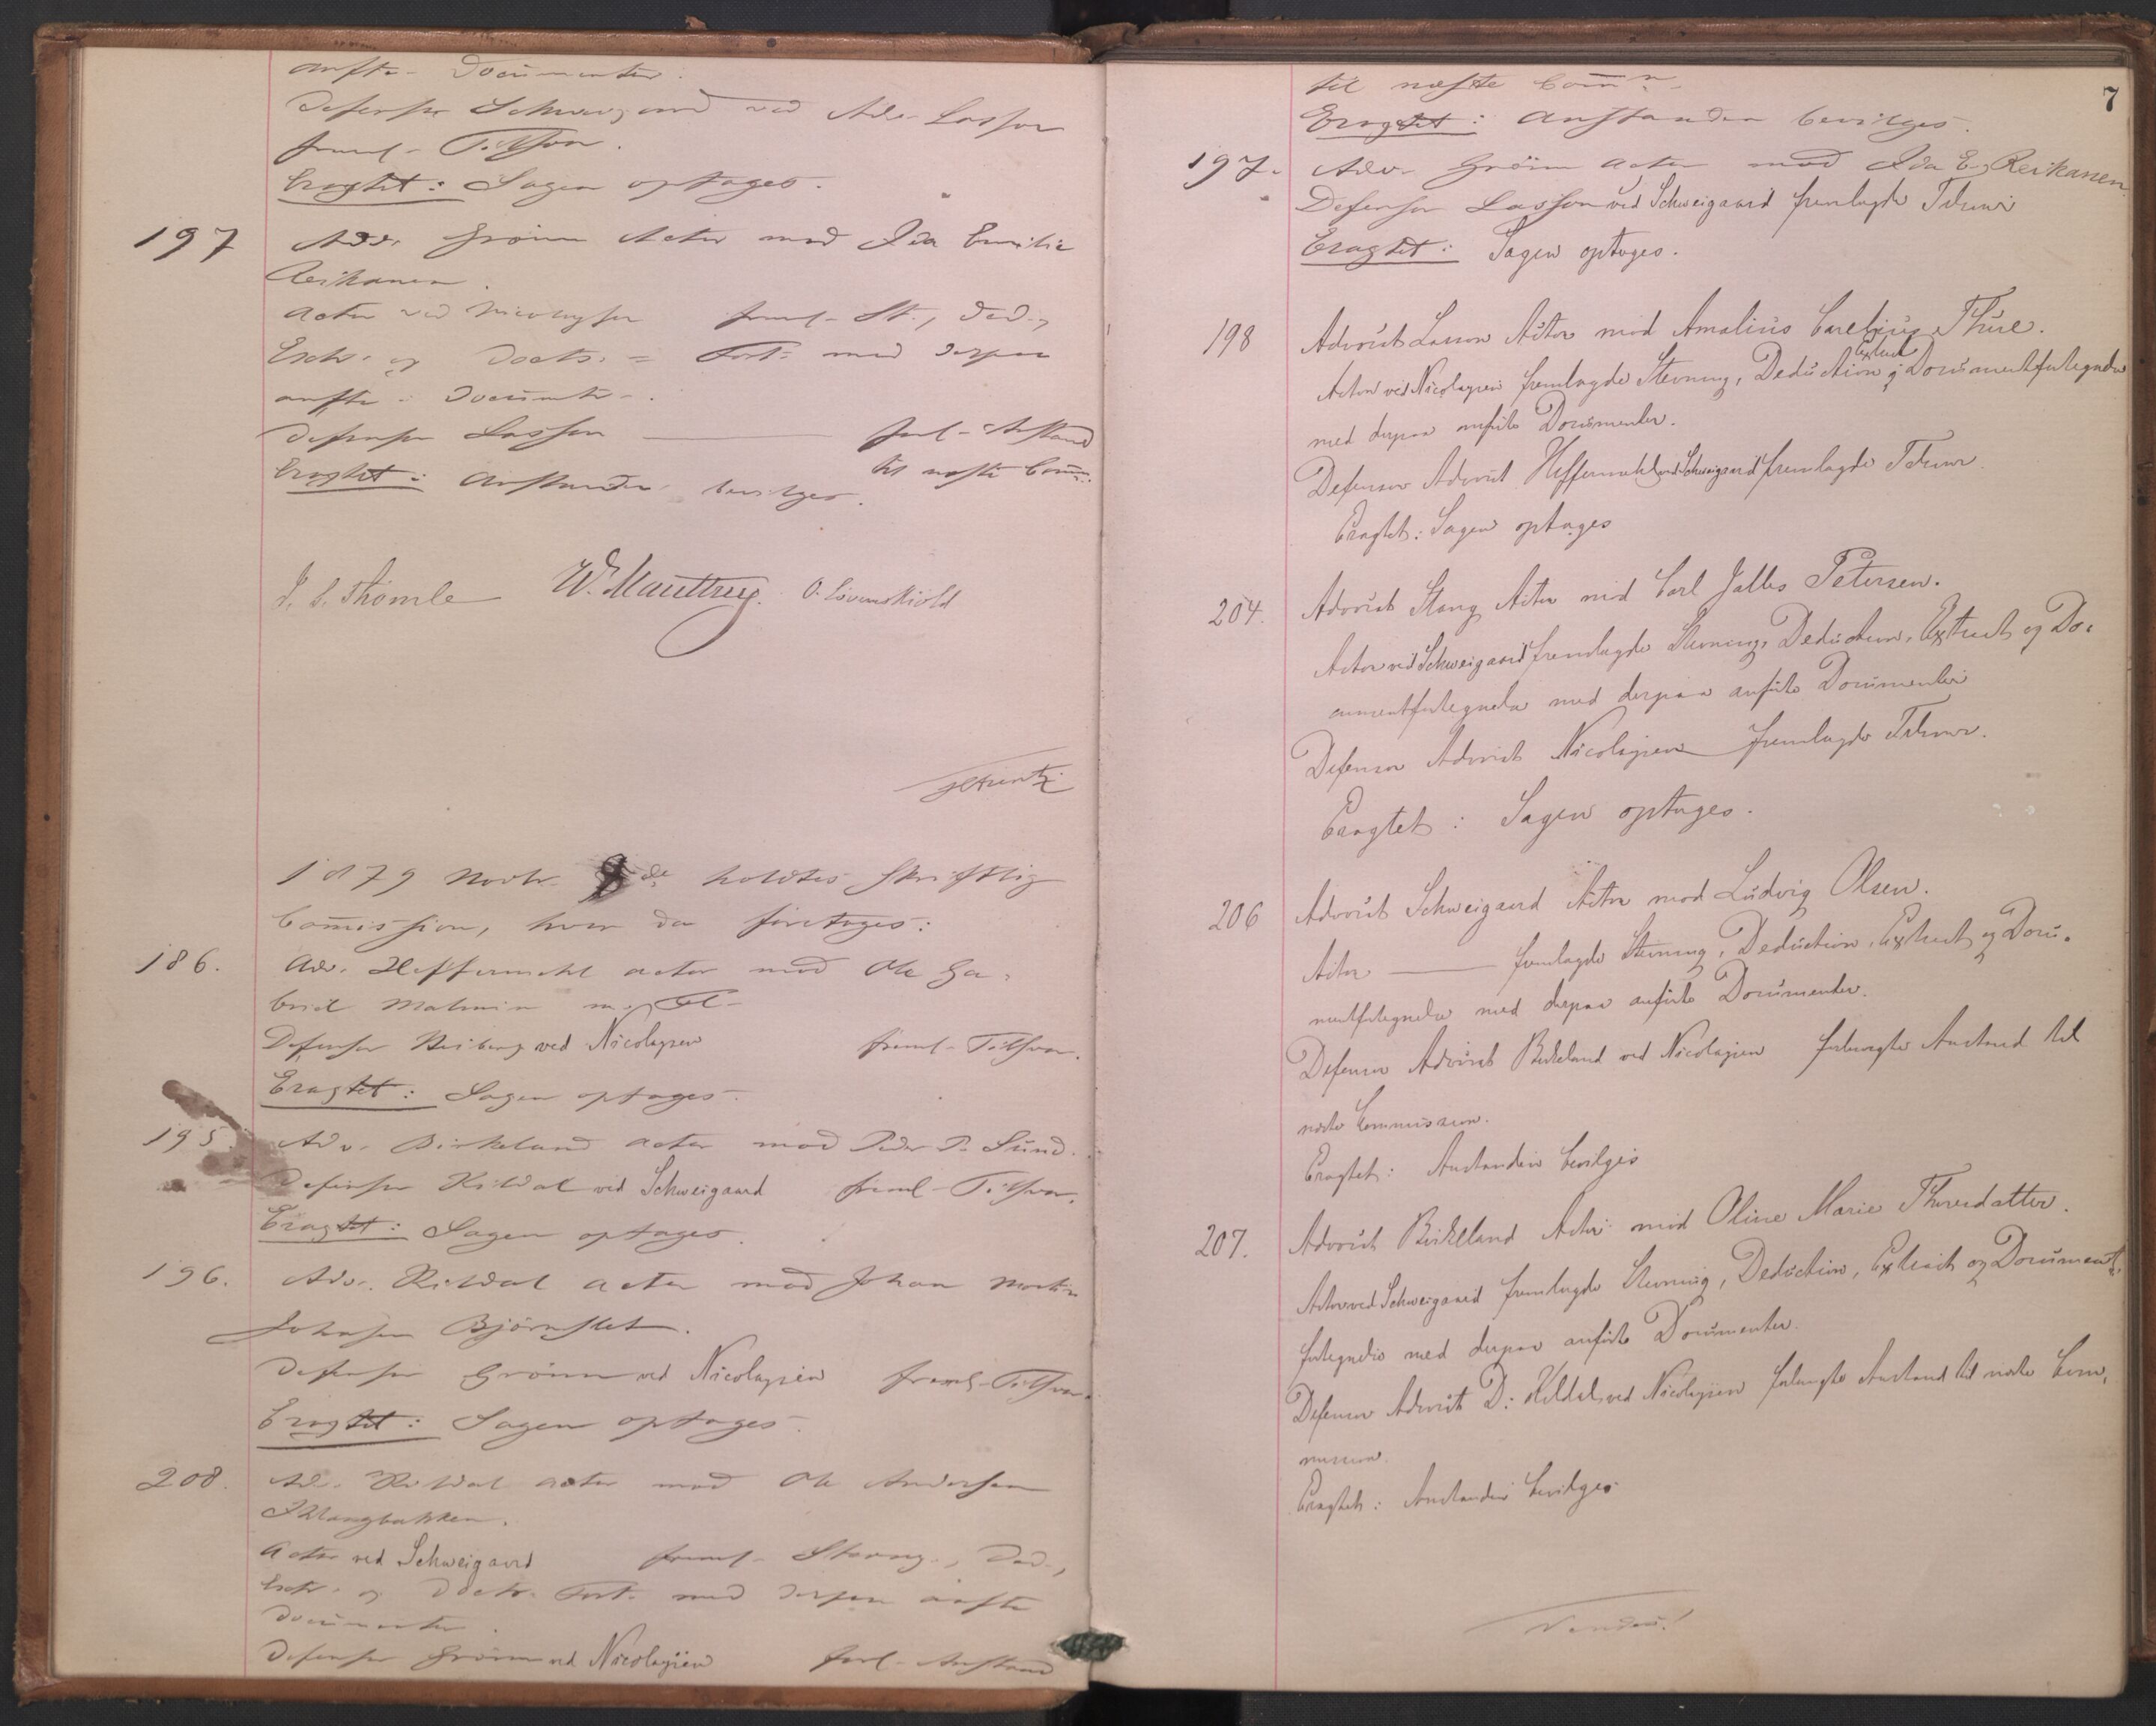 anfte - Documenter.
Defensor Schweigaard ved Adv. Lasson
freml - Tilsvar.
Eragtet: Sagen optages.
197 Adv. Grönn Actor mod Ida Emilie
Reikanen.
Actor ved Nicolaysen freml - St., Ded.,
Extr. og Doctr. = Fort. med derpaa
anfte - Documenter.
Defensor Lasson forl - Anstand
til næste Comm.
Eragtet: Anstanden bevilges.
O. Løvenskiold
1879 Novbr. de holdtes skriftlig
Commission, hvor da foretoges:
186. Adv. Heffermehl actor mod Ole Ga-
briel Malmin m. Fl -
Defensor ved Nicolaysen freml - Tilsvar.
Eragtet: Sagen optages.
195 Adv. Birkeland actor mod Peder P. Sund.
Defensor Kildal ved Schweigaard freml - Tilsvar.
Eragtet: Sagen optages.
196. Adv. Kildal actor mod Johan Martin
Johnsen Björnslet.
Defensor Grönn ved Nicolaysen freml - Tilsvar.
Eragtet: Sagen optages.
208. Adv. Kildal actor mod Ole Andersen
Actor ved Schweigaard freml - Stevng., Ded.,
Extr. og Doctr. Fort. med derpaa anfte
Documenter.
Defensor Grönn ved Nicolaysen forl - Anstand
7
til næste Comm.
Eragtet: Anstanden bevilges.
197. Adv. Grönn actor mod Ida E. Reikanen.
Defensor Lasson ved Schweigaard fremlagde Tilsvar
Eragtet: Sagen optages.
198 Advocat Lasson Actor mod Amalius Thue.
Extract
Actor ved Nicolaysen fremlagde Stevning, Deduction og Documentfortegnelse
med derpaa anførte Documenter.
Defensor Advocat Heffermehl ved Schweigaard fremlagde Tilsvar.
Eragtet: Sagen optages
204. Advocat Stang Actor mod Carl Petersen.
Actor ved Schweigaard fremlagde Stevning, Deduction, Extract og Do-
cumentfortegnelse med derpaa anførte Documenter
Defensor Advocat Nicolaysen fremlagde Tilsvar.
Eragtet: Sagen optages.
206 Advocat Schweigaard Actor mod Ludvig Olsen.
Actor fremlagde Stevning, Deduction, Extract og Docu-
mentfortegnelse med derpaa anførte Documenter.
Defensor Advocat Birkeland ved Nicolaysen forlangte Anstand til
næste Commission.
Eragtet: Anstanden bevilges
207. Advocat Birkeland Actor mod Oline Marie Thoresdatter.
Actor ved Schweigaard fremlagde Stevning, Deduction, Extract og Document-
fortegnelse med derpaa anførte Documenter.
Defensor Advocat D: Kildal ved Nicolaysen forlangte Anstand til næste Com-
mission.
Eragtet: Anstanden bevilges
Vendes!